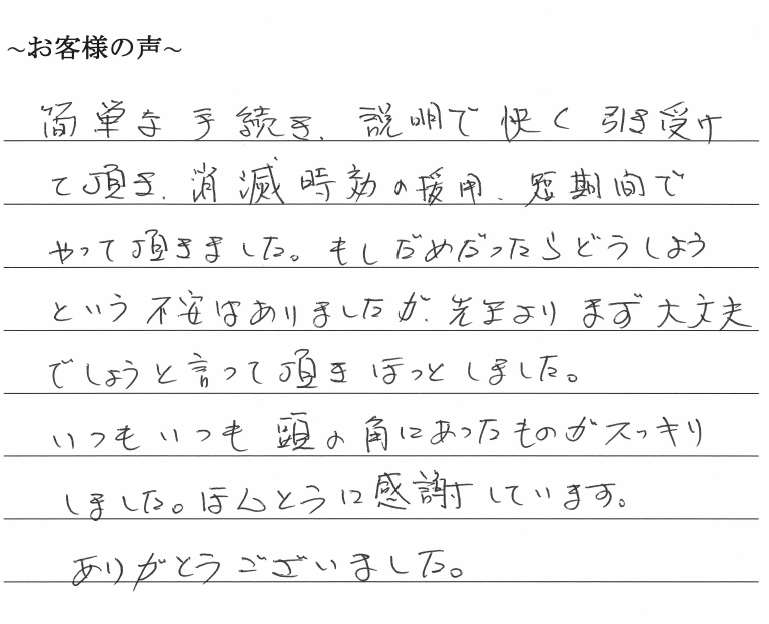 ~お客様の声~
簡単な手続き、説明で快く引き受け
て頂き、消滅時効の援用、短期間で
やって頂きました。もしだめだったらどうしよう
という不安はありましたが、先生よりまず大丈夫
でしょうと言って頂きほっとしました。
いつもいつも頭の角にあったものがスッキリ
しました。ほんとうに感謝しています。
ありがとうございました。